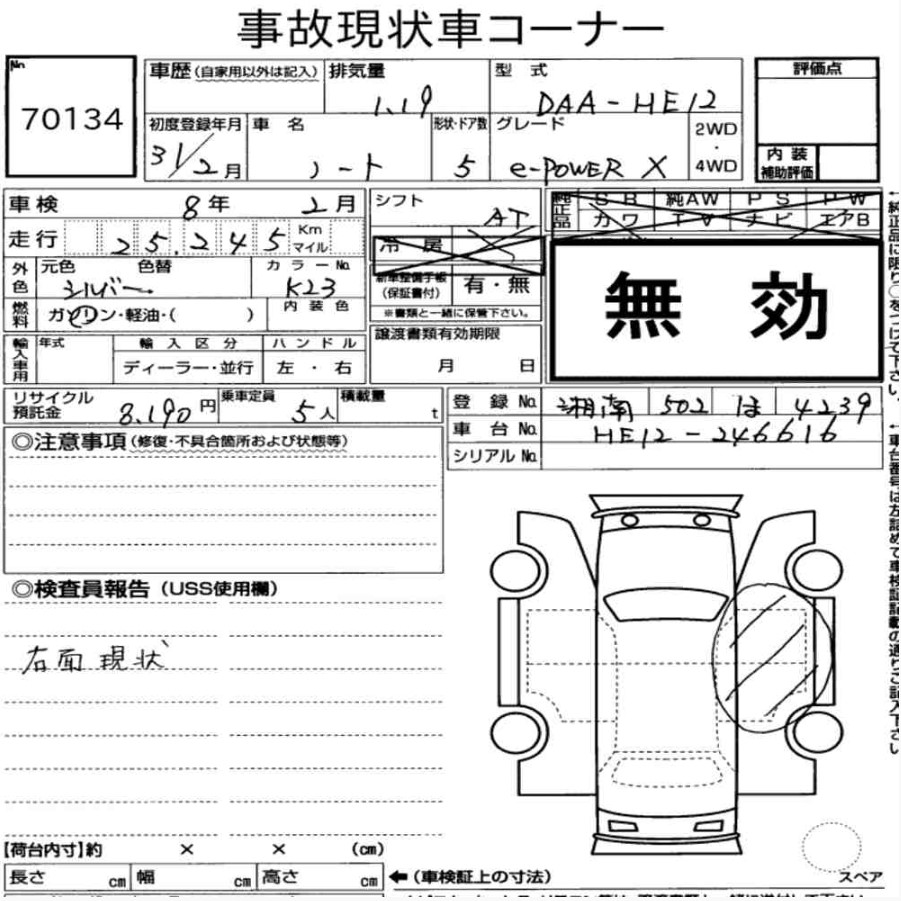 事故現状車コーナー
No
70134
車歴(自家用以外は記入) 排気量 1.19 型式 DAA-HE12
初度登録年月 31/2月 車名 ノート 形状・ドア数 5 グレード e-POWER X 2WD・4WD
評価点
内装補助評価
車検 8年 2月
走行 25,245 Km マイル
外色 元色 シルバー 色替 カラーNo. K23
燃料 ガソリン・軽油・( ) 内装色
輸入車用 年式 輸入区分 ディーラー・並行 ハンドル 左・右
シフト AT
冷房
新車整備手帳(保証書付) 有・無
※書類と一緒に保管下さい。
譲渡書類有効期限
月 日
純正品 SR 純AW PS PW
カワ TV ナビ エアB
無効
←純正品に限り○をつけて下さい。
リサイクル預託金 8,190円 乗車定員 5人 積載量 t
登録No. 湘南 502 ほ 4239
車台No. HE12-246616
シリアルNo.
←車台番号は左詰めで車検証記載の通りご記入下さい
◎注意事項(修復・不具合箇所および状態等)
◎検査員報告(USS使用欄)
右面現状
【荷台内寸】約 × × (cm)
長さ cm 幅 cm 高さ cm ←(車検証上の寸法)
スペア